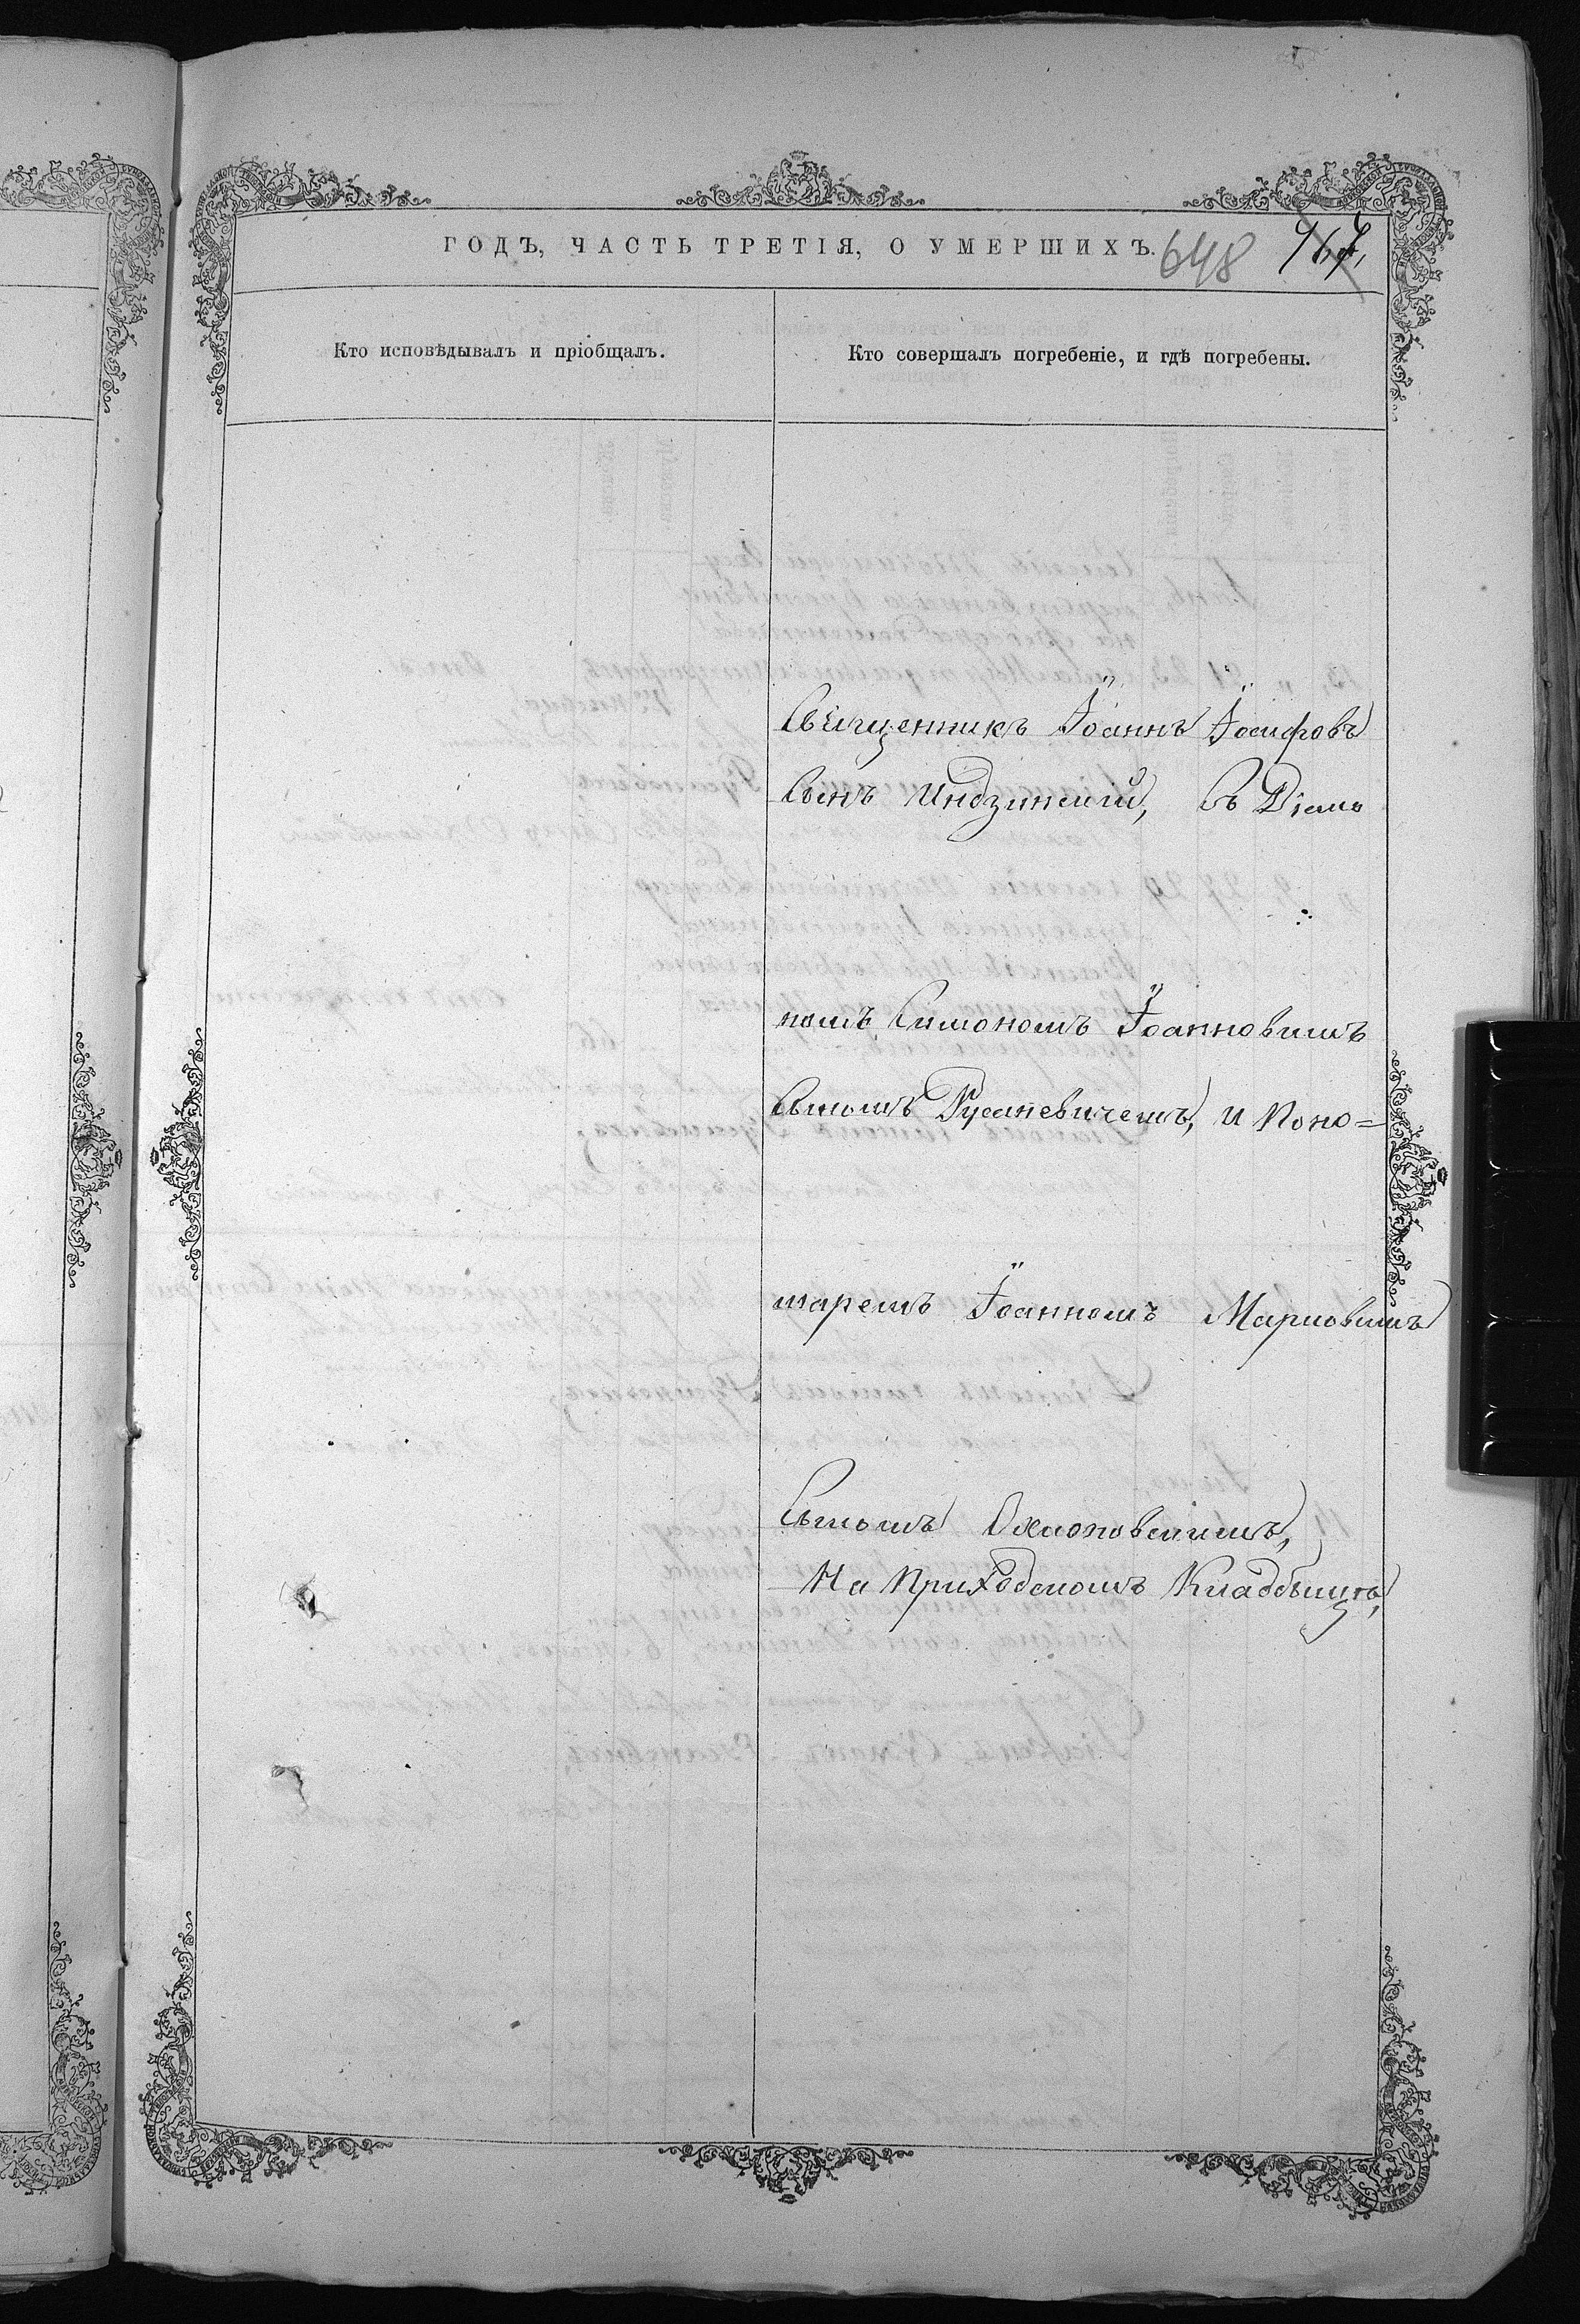 ГОДЪ, ЧАСТЬ ТРЕТІЯ, О УМЕРШИХЪ.
648
Кто исповѣдывалъ и пріобщалъ.
Кто совершалъ погребеніе, и гдѣ погребены.
Священникъ Іоаннъ Іосифовъ
Сынъ Индзинскій, Съ Діако
номъ Симономъ Іоанновымъ
Сыномъ Русаневичемъ, и Поно=
маремъ Іоанномъ Марковымъ
Сыномъ
На Приходскомъ Кладбыщѣ,